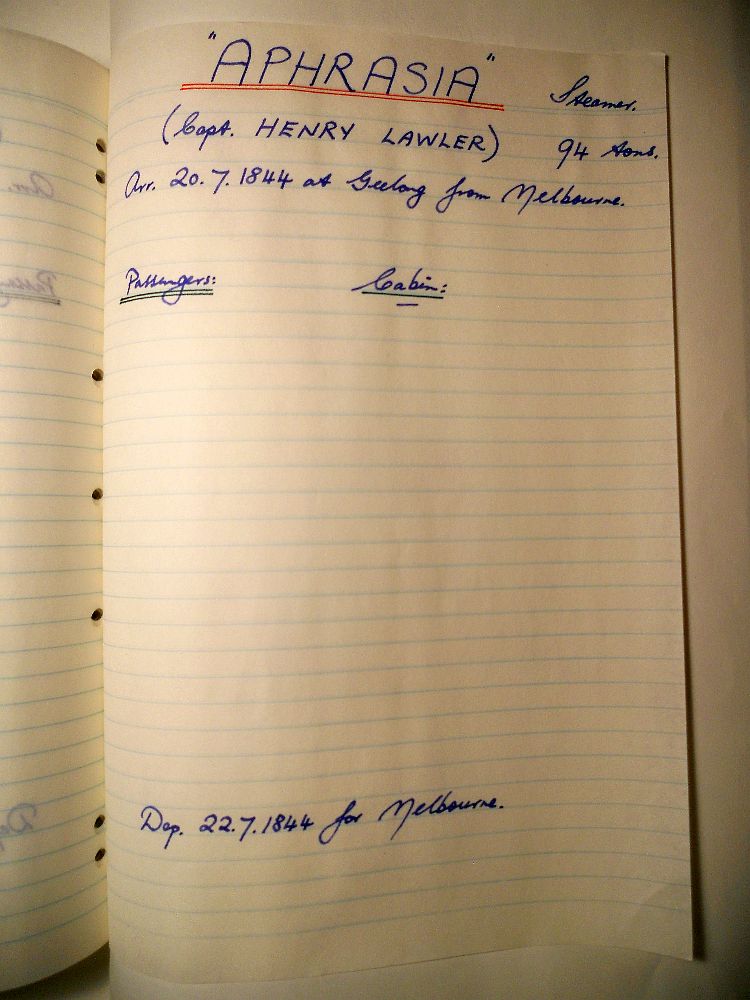 "APHRASIA" Steamer.
(Capt. HENRY LAWLER) 94 tons.
Arr. 20.7.1844 at Geelong from Melbourne.
Passengers: Cabin:
Dep. 22.7.1844 for Melbourne.